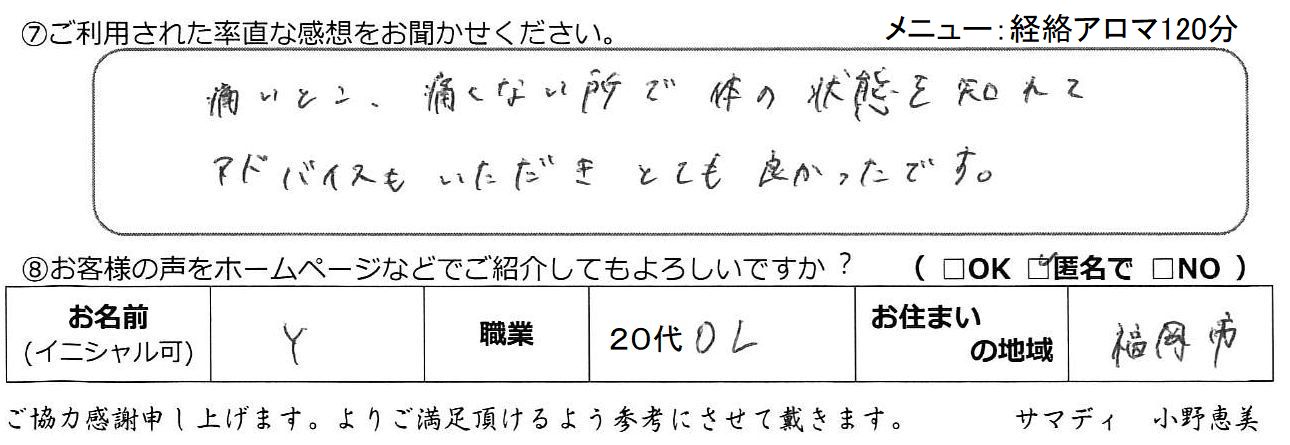 ⑦ご利用された率直な感想をお聞かせください。 メニュー：経絡アロマ120分
痛いとこ、痛くない所で体の状態を知れて
アドバイスもいただきとても良かったです。
⑧お客様の声をホームページなどでご紹介してもよろしいですか？ （ □OK ☑匿名で □NO ）
お名前 (イニシャル可) Y 職業 20代OL お住まいの地域 福岡市
ご協力感謝申し上げます。よりご満足頂けるよう参考にさせて戴きます。 サマディ 小野恵美